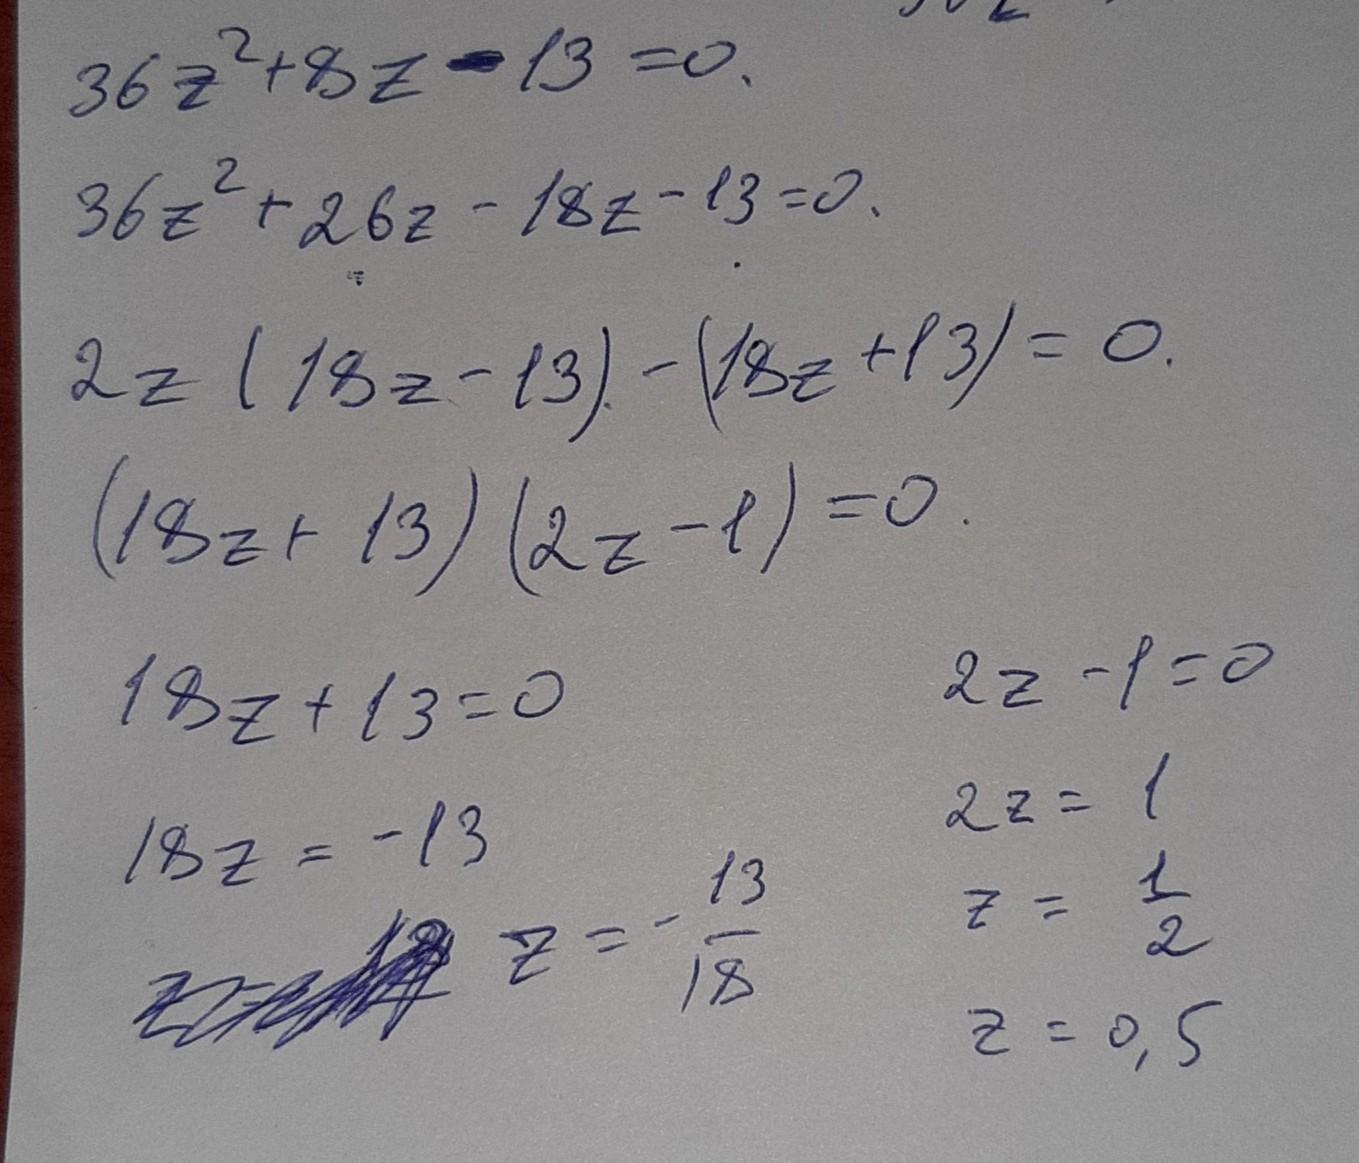 36z²+8z-13=0.
36z²+26z-18z-13=0.
2z(18z-13)-(18z+13)=0.
(18z+13)(2z-1)=0.
18z+13=0
2z-1=0
18z=-13
2z=1
z=-13/18
z=1/2
z=0,5